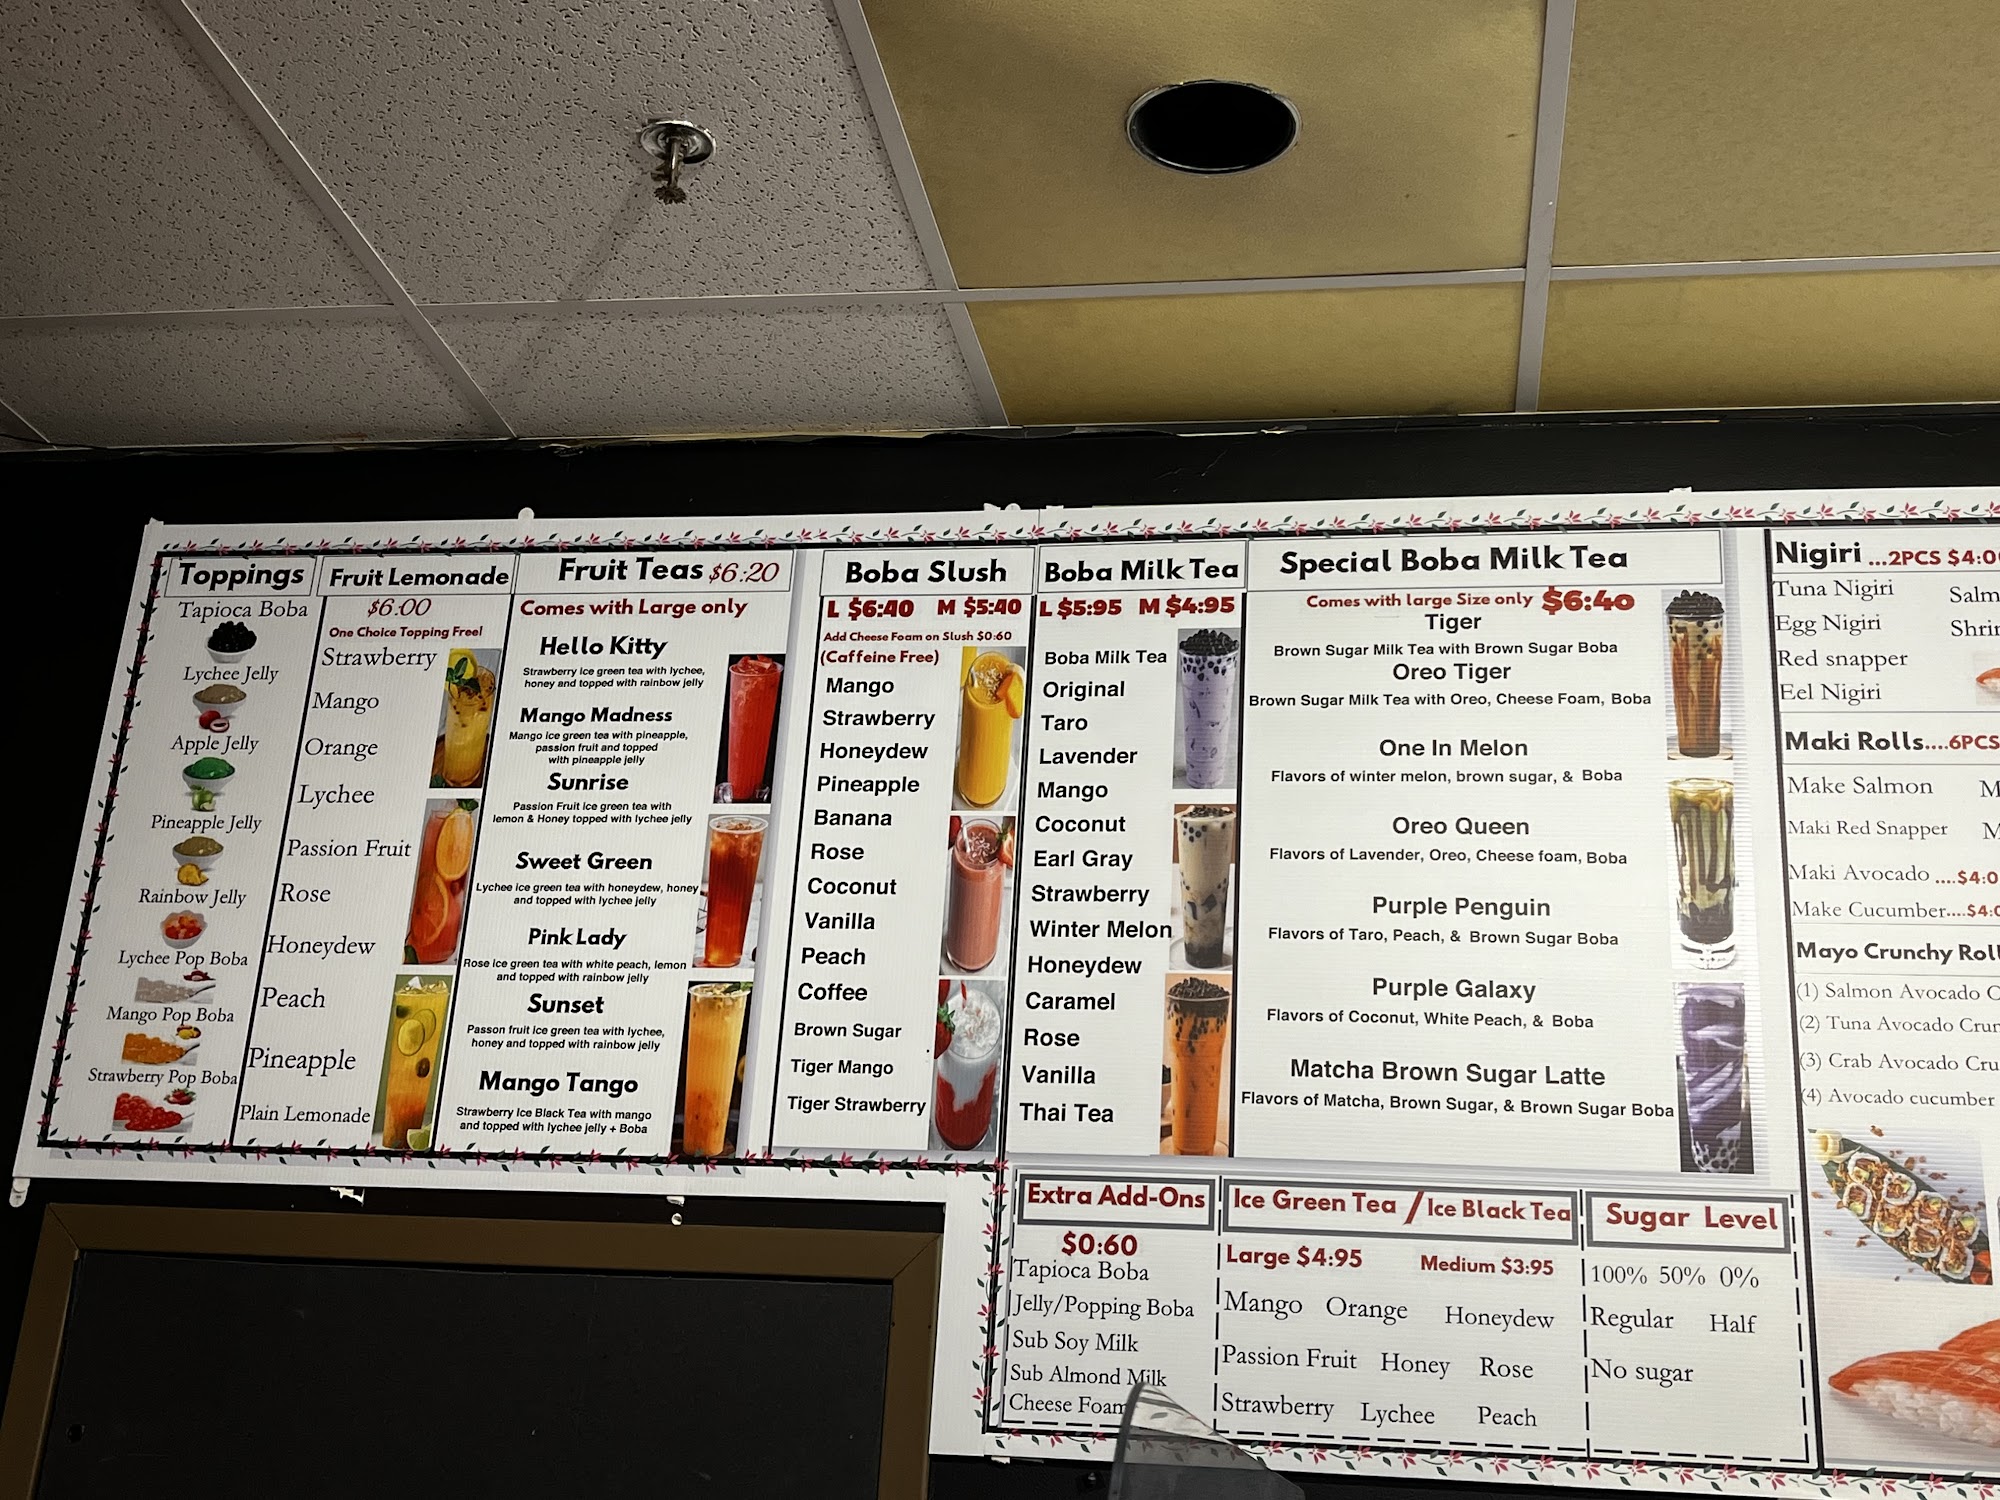 Toppings
Tapioca Boba
Lychee Jelly
Apple Jelly
Pineapple Jelly
Rainbow Jelly
Lychee Pop Boba
Mango Pop Boba
Strawberry Pop Boba
Fruit Lemonade
$6:00
One Choice Topping Free!
Strawberry
Mango
Orange
Lychee
Passion Fruit
Rose
Honeydew
Peach
Pineapple
Plain Lemonade
Fruit Teas $6:20
Comes with Large only
Hello Kitty
Strawberry ice green tea with lychee,
honey and topped with rainbow jelly
Mango Madness
Mango ice green tea with pineapple,
passion fruit and topped
with pineapple jelly
Sunrise
Passion Fruit ice green tea with
lemon & Honey topped with lychee jelly
Sweet Green
Lychee ice green tea with honeydew, honey
and topped with lychee jelly
Pink Lady
Rose ice green tea with white peach, lemon
and topped with rainbow jelly
Sunset
Passon fruit ice green tea with lychee,
honey and topped with rainbow jelly
Mango Tango
Strawberry Ice Black Tea with mango
and topped with lychee jelly + Boba
Boba Slush
L $6:40 M $5:40
Add Cheese Foam on Slush $0:60
(Caffeine Free)
Mango
Strawberry
Honeydew
Pineapple
Banana
Rose
Coconut
Vanilla
Peach
Coffee
Brown Sugar
Tiger Mango
Tiger Strawberry
Boba Milk Tea
L $5:95 M $4:95
Boba Milk Tea
Original
Taro
Lavender
Mango
Coconut
Earl Gray
Strawberry
Winter Melon
Honeydew
Caramel
Rose
Vanilla
Thai Tea
Special Boba Milk Tea
Comes with large Size only $6:40
Tiger
Brown Sugar Milk Tea with Brown Sugar Boba
Oreo Tiger
Brown Sugar Milk Tea with Oreo, Cheese Foam, Boba
One In Melon
Flavors of winter melon, brown sugar, & Boba
Oreo Queen
Flavors of Lavender, Oreo, Cheese foam, Boba
Purple Penguin
Flavors of Taro, Peach, & Brown Sugar Boba
Purple Galaxy
Flavors of Coconut, White Peach, & Boba
Matcha Brown Sugar Latte
Flavors of Matcha, Brown Sugar, & Brown Sugar Boba
Extra Add-Ons
$0:60
Tapioca Boba
Jelly/Popping Boba
Sub Soy Milk
Sub Almond Milk
Cheese Foam
Ice Green Tea / Ice Black Tea
Large $4:95 Medium $3:95
Mango Orange Honeydew
Passion Fruit Honey Rose
Strawberry Lychee Peach
Sugar Level
100% 50% 0%
Regular Half
No sugar
Nigiri ...2PCS $4:0
Tuna Nigiri Salm
Egg Nigiri Shri
Red snapper
Eel Nigiri
Maki Rolls....6PCS
Make Salmon M
Maki Red Snapper M
Maki Avocado ....$4:0
Make Cucumber....$4:0
Mayo Crunchy Roll
(1) Salmon Avocado C
(2) Tuna Avocado Crun
(3) Crab Avocado Cru
(4) Avocado cucumber